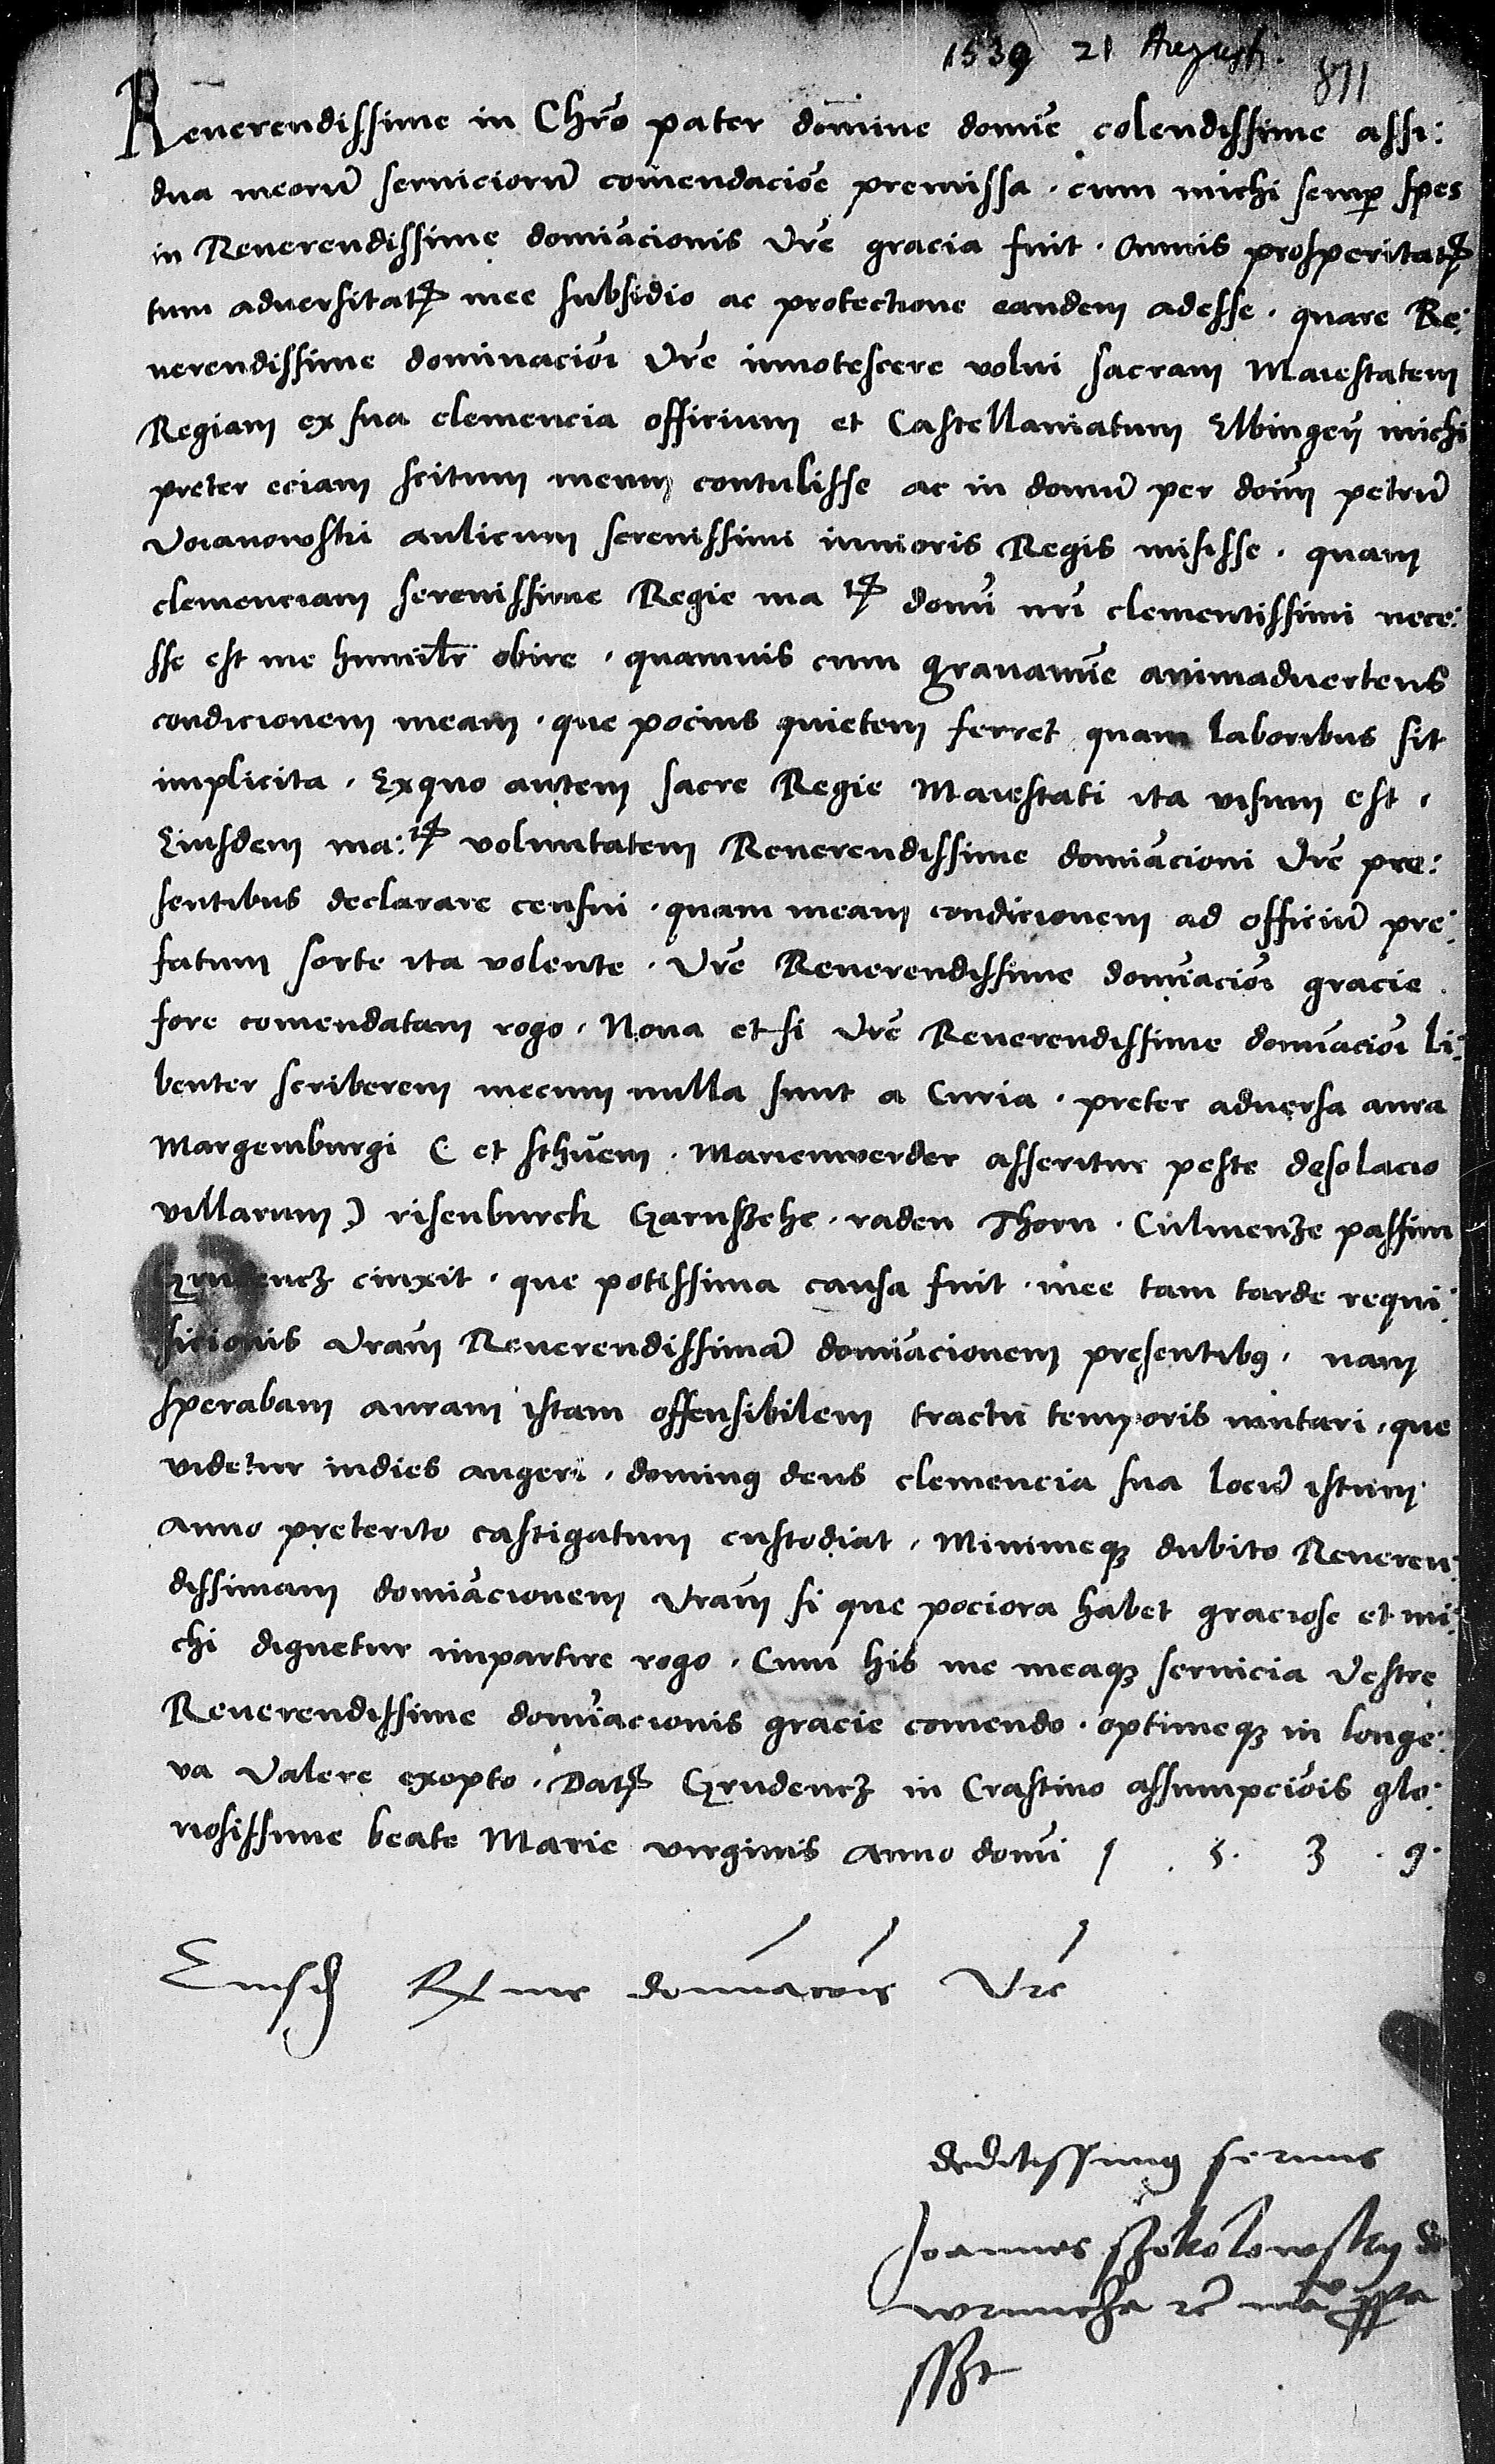 1539 21 Augusti
871
Reverendissime in Chr̄o pater domine domīe colendissime assi:
dua meorū serviciorū comendaciōe premissa . cum michi semꝑ spes
in Reverendissime domīacionis vrē gracia fuit . omnis prosperitatꝭ
tum adversitatꝭ mee subsidio ac protectione eandem adesse . quare Re:
verendissime dominaciōi vrē innotescere volui sacram Maiestatem
Regiam ex sua clemencia officium et Castellaniatum Elbingeñ michi
preter eciam scitum meum contulisse ac in domū per doim̄ petrū
Voianowski aulicum serenissimi iunioris Regis misisse . quam
clemenciam serenissime Regie ma tꝭ domī nrī clementissimi nece:
sse est me humilr̄ obire . quamvis cum gravamīe animadvertens
condicionem meam . que pocius quietem ferret quam laboribus sit
implicita . Ex quo autem sacre Regie Maiestati ita visum est .
Eiusdem ma: tꝭ voluntatem Reverendissime domīacioni vrē pre:
sentibus declarare censui . quam meam condicionem ad officiū pre:
fatum sorte ita volente . vrē Reverendissime domīaciōi gracie .
fore comendatam rogo . Nova etsi vrē Reverendissime domīaciōi li:
benter scriberem mecum nulla sunt a Curia . preter adversa aura
Margemburgi ( et sthūem . Marienwerder asseritur peste desolacio
villarum ) risenburck Garnszehe . raden Thorn . Culmenze passim
Grudencz cinxit . que potissima causa fuit . mee tam tarde requi:
sicionis vram̄ Reverendissimā domīacionem presentibꝰ . nam
sperabam auram istam offensibilem tractu temporis mutari . que
videtur indies augeri . dominꝰ deus clemencia sua locū istum
anno preterito castigatum custodiat . Minimeqꝫ dubito Reveren:
dissimam domīacionem vram̄ si que pociora habet graciose et mi:
chi dignetur impartire rogo . Cum his me meaqꝫ servicia Vestre
Reverendissime domīacionis gracie comendo . optimeqꝫ in longe:
va valere exopto . Datꝭ Grudencz in Crastino assumpciōis glo:
riosissime beate Marie virginis anno domī 1 . 5 . 3 . 9 .
Eiusđ Rx me domīacōis Vrē
deditissimꝰ servus
Joannes szokolowsky de
wruncza rē mā ꝓpa
sszt